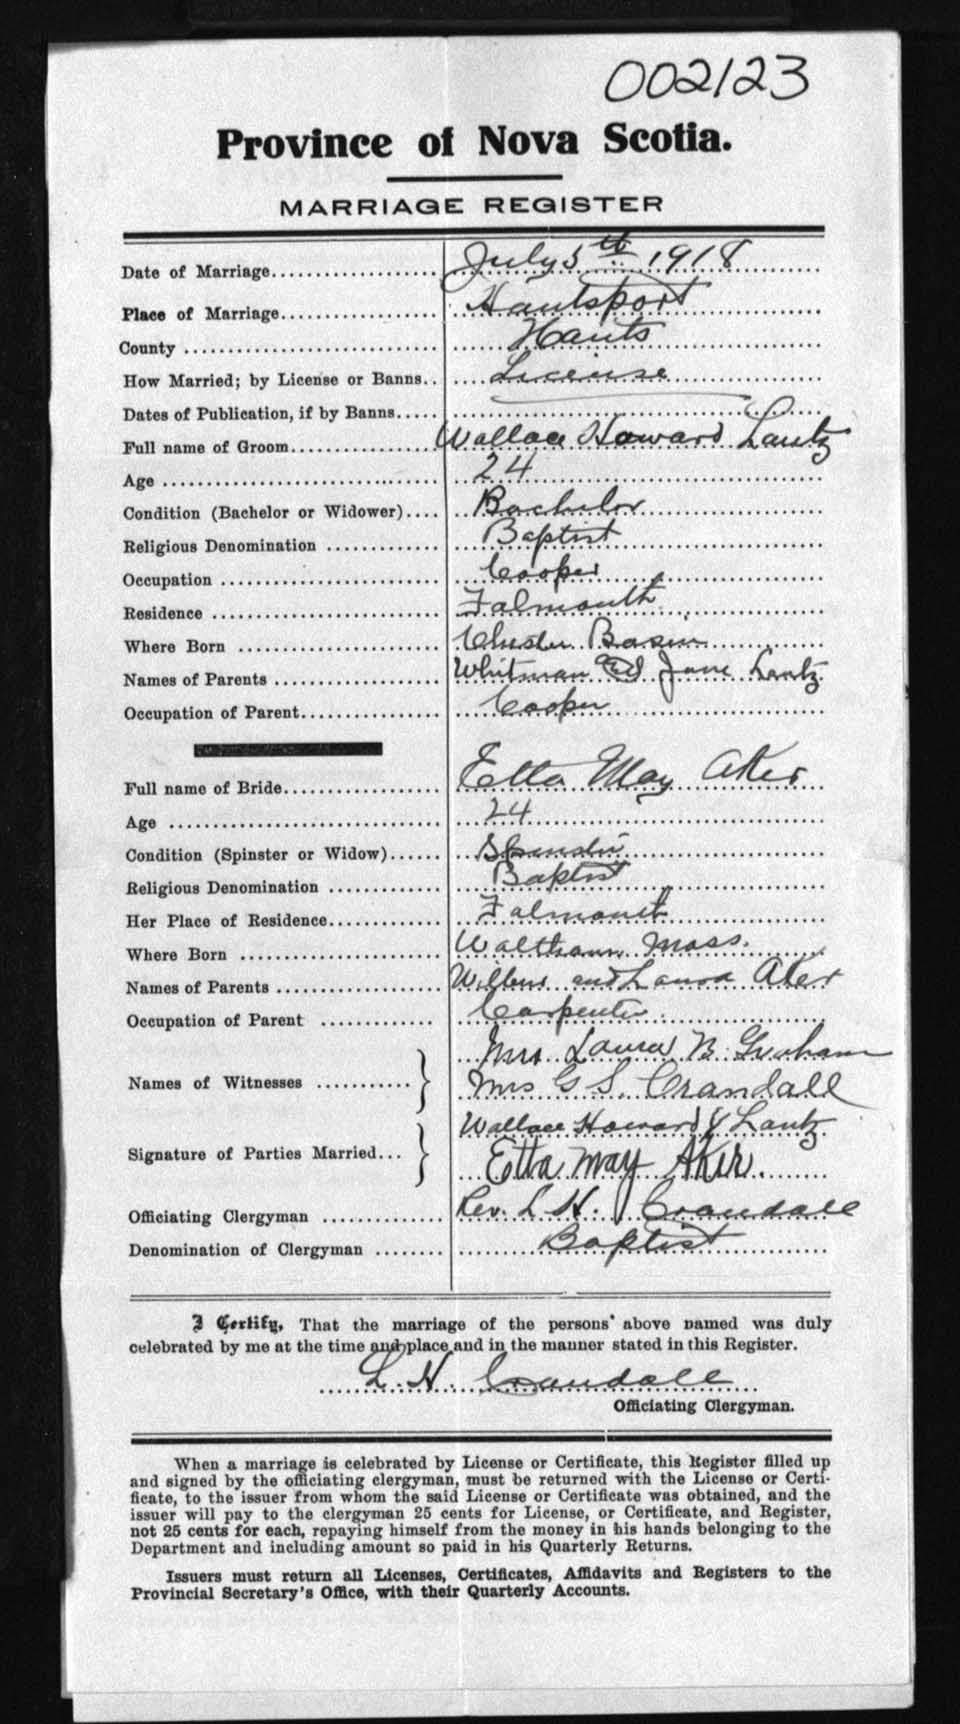 002123
Province of Nova Scotia.
MARRIAGE REGISTER
Date of Marriage.................... July 5th 1918
Place of Marriage.................. Hantsport
County .......................... Hants
How Married; by License or Banns.. License
Dates of Publication, if by Banns.....
Full name of Groom................. Wallace Howard Lantz
Age ............................ 24
Condition (Bachelor or Widower).... Bachelor
Religious Denomination ............ Baptist
Occupation ....................... Cooper
Residence ........................ Falmouth
Where Born ...................... Chester Basin
Names of Parents ................. Whitman and Jane Lantz
Occupation of Parent................ Cooper
Full name of Bride................... Etta May Aker
Age ............................. 24
Condition (Spinster or Widow)...... Spinster
Religious Denomination ............ Baptist
Her Place of Residence............. Falmouth
Where Born ...................... Waltham Mass.
Names of Parents ................. and Laura Aker
Occupation of Parent ............. Carpenter
Mrs Laura B Graham
Names of Witnesses ...........
Mrs G S. Crandall
Wallace Howard Lantz
Signature of Parties Married...
Etta May Aker.
Officiating Clergyman ............. Rev. L H. Crandall
Denomination of Clergyman ........ Baptist
I Certify, That the marriage of the persons' above named was duly
celebrated by me at the time and place and in the manner stated in this Register.
L. H. Crandall
Officiating Clergyman.
When a marriage is celebrated by License or Certificate, this Register filled up
and signed by the officiating clergyman, must be returned with the License or Certi-
ficate, to the issuer from whom the said License or Certificate was obtained, and the
issuer will pay to the clergyman 25 cents for License, or Certificate, and Register,
not 25 cents for each, repaying himself from the money in his hands belonging to the
Department and including amount so paid in his Quarterly Returns.
Issuers must return all Licenses, Certificates, Affidavits and Registers to the
Provincial Secretary's Office, with their Quarterly Accounts.